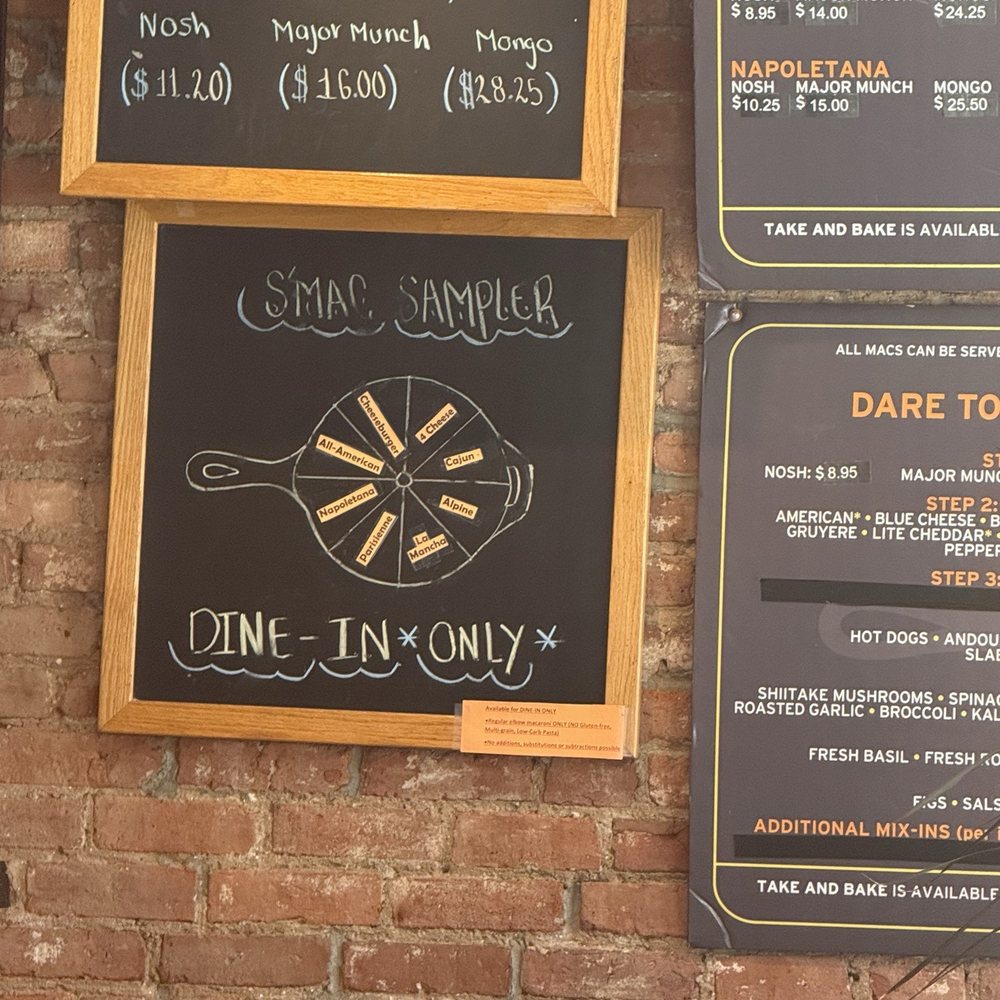 Nosh Major Munch Mongo
($ 11.20) ($ 16.00) ($28.25)
S'MAC SAMPLER
Cheeseburger
4 Cheese
All-American
Cajun
Napoletana
Alpine
Parisienne
La
Mancha
DINE-IN *ONLY*
Available for DINE-IN ONLY
•Regular elbow macaroni ONLY (NO Gluten-free,
Multi-grain, Low-Carb Pasta)
•No additions, substitutions or subtractions possible
$ 8.95 $ 14.00 $ 24.25
NAPOLETANA
NOSH MAJOR MUNCH MONGO
$10.25 $ 15.00 $ 25.50
TAKE AND BAKE IS AVAILABL
ALL MACS CAN BE SERVE
DARE TO
NOSH: $ 8.95 MAJOR MUNC
STEP 2:
AMERICAN* • BLUE CHEESE • B
GRUYERE • LITE CHEDDAR* •
PEPPER
STEP 3:
HOT DOGS • ANDOU
SLAB
SHIITAKE MUSHROOMS • SPINAC
ROASTED GARLIC • BROCCOLI • KAL
FRESH BASIL • FRESH RO
FIGS • SALS
ADDITIONAL MIX-INS (per i
TAKE AND BAKE IS AVAILABLE